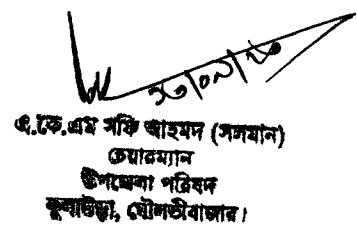 এ.কে.এম সফি আহমদ (সলমান)
চেয়ারম্যান
উপজেলা পরিষদ
কুলাউড়া, মৌলভীবাজার।